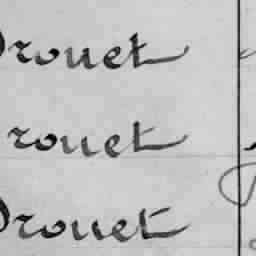 Drouet
rouet
Drouet